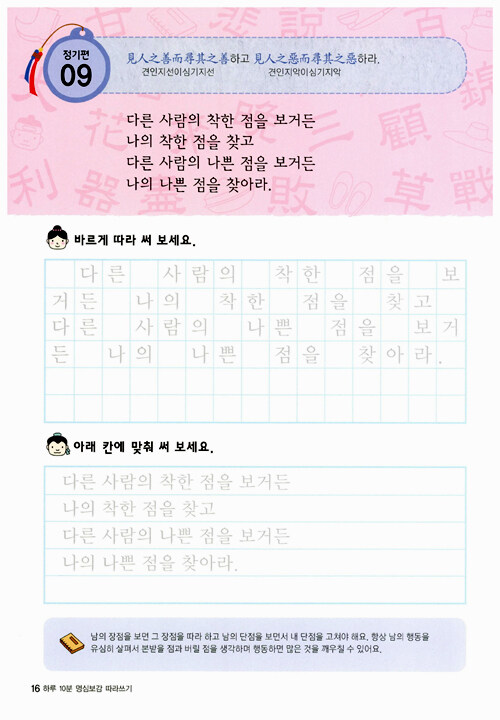 정기편
09
見人之善而尋其之善하고 見人之惡而尋其之惡하라.
견인지선이심기지선 견인지악이심기지악
다른 사람의 착한 점을 보거든
나의 착한 점을 찾고
다른 사람의 나쁜 점을 보거든
나의 나쁜 점을 찾아라.
바르게 따라 써 보세요.
다른 사람의 착한 점을 보
거든 나의 착한 점을 찾고
다른 사람의 나쁜 점을 보거
든 나의 나쁜 점을 찾아라.
아래 칸에 맞춰 써 보세요.
다른 사람의 착한 점을 보거든
나의 착한 점을 찾고
다른 사람의 나쁜 점을 보거든
나의 나쁜 점을 찾아라.
남의 장점을 보면 그 장점을 따라 하고 남의 단점을 보면서 내 단점을 고쳐야 해요. 항상 남의 행동을
유심히 살펴서 본받을 점과 버릴 점을 생각하며 행동하면 많은 것을 깨우칠 수 있어요.
16 하루 10분 명심보감 따라쓰기